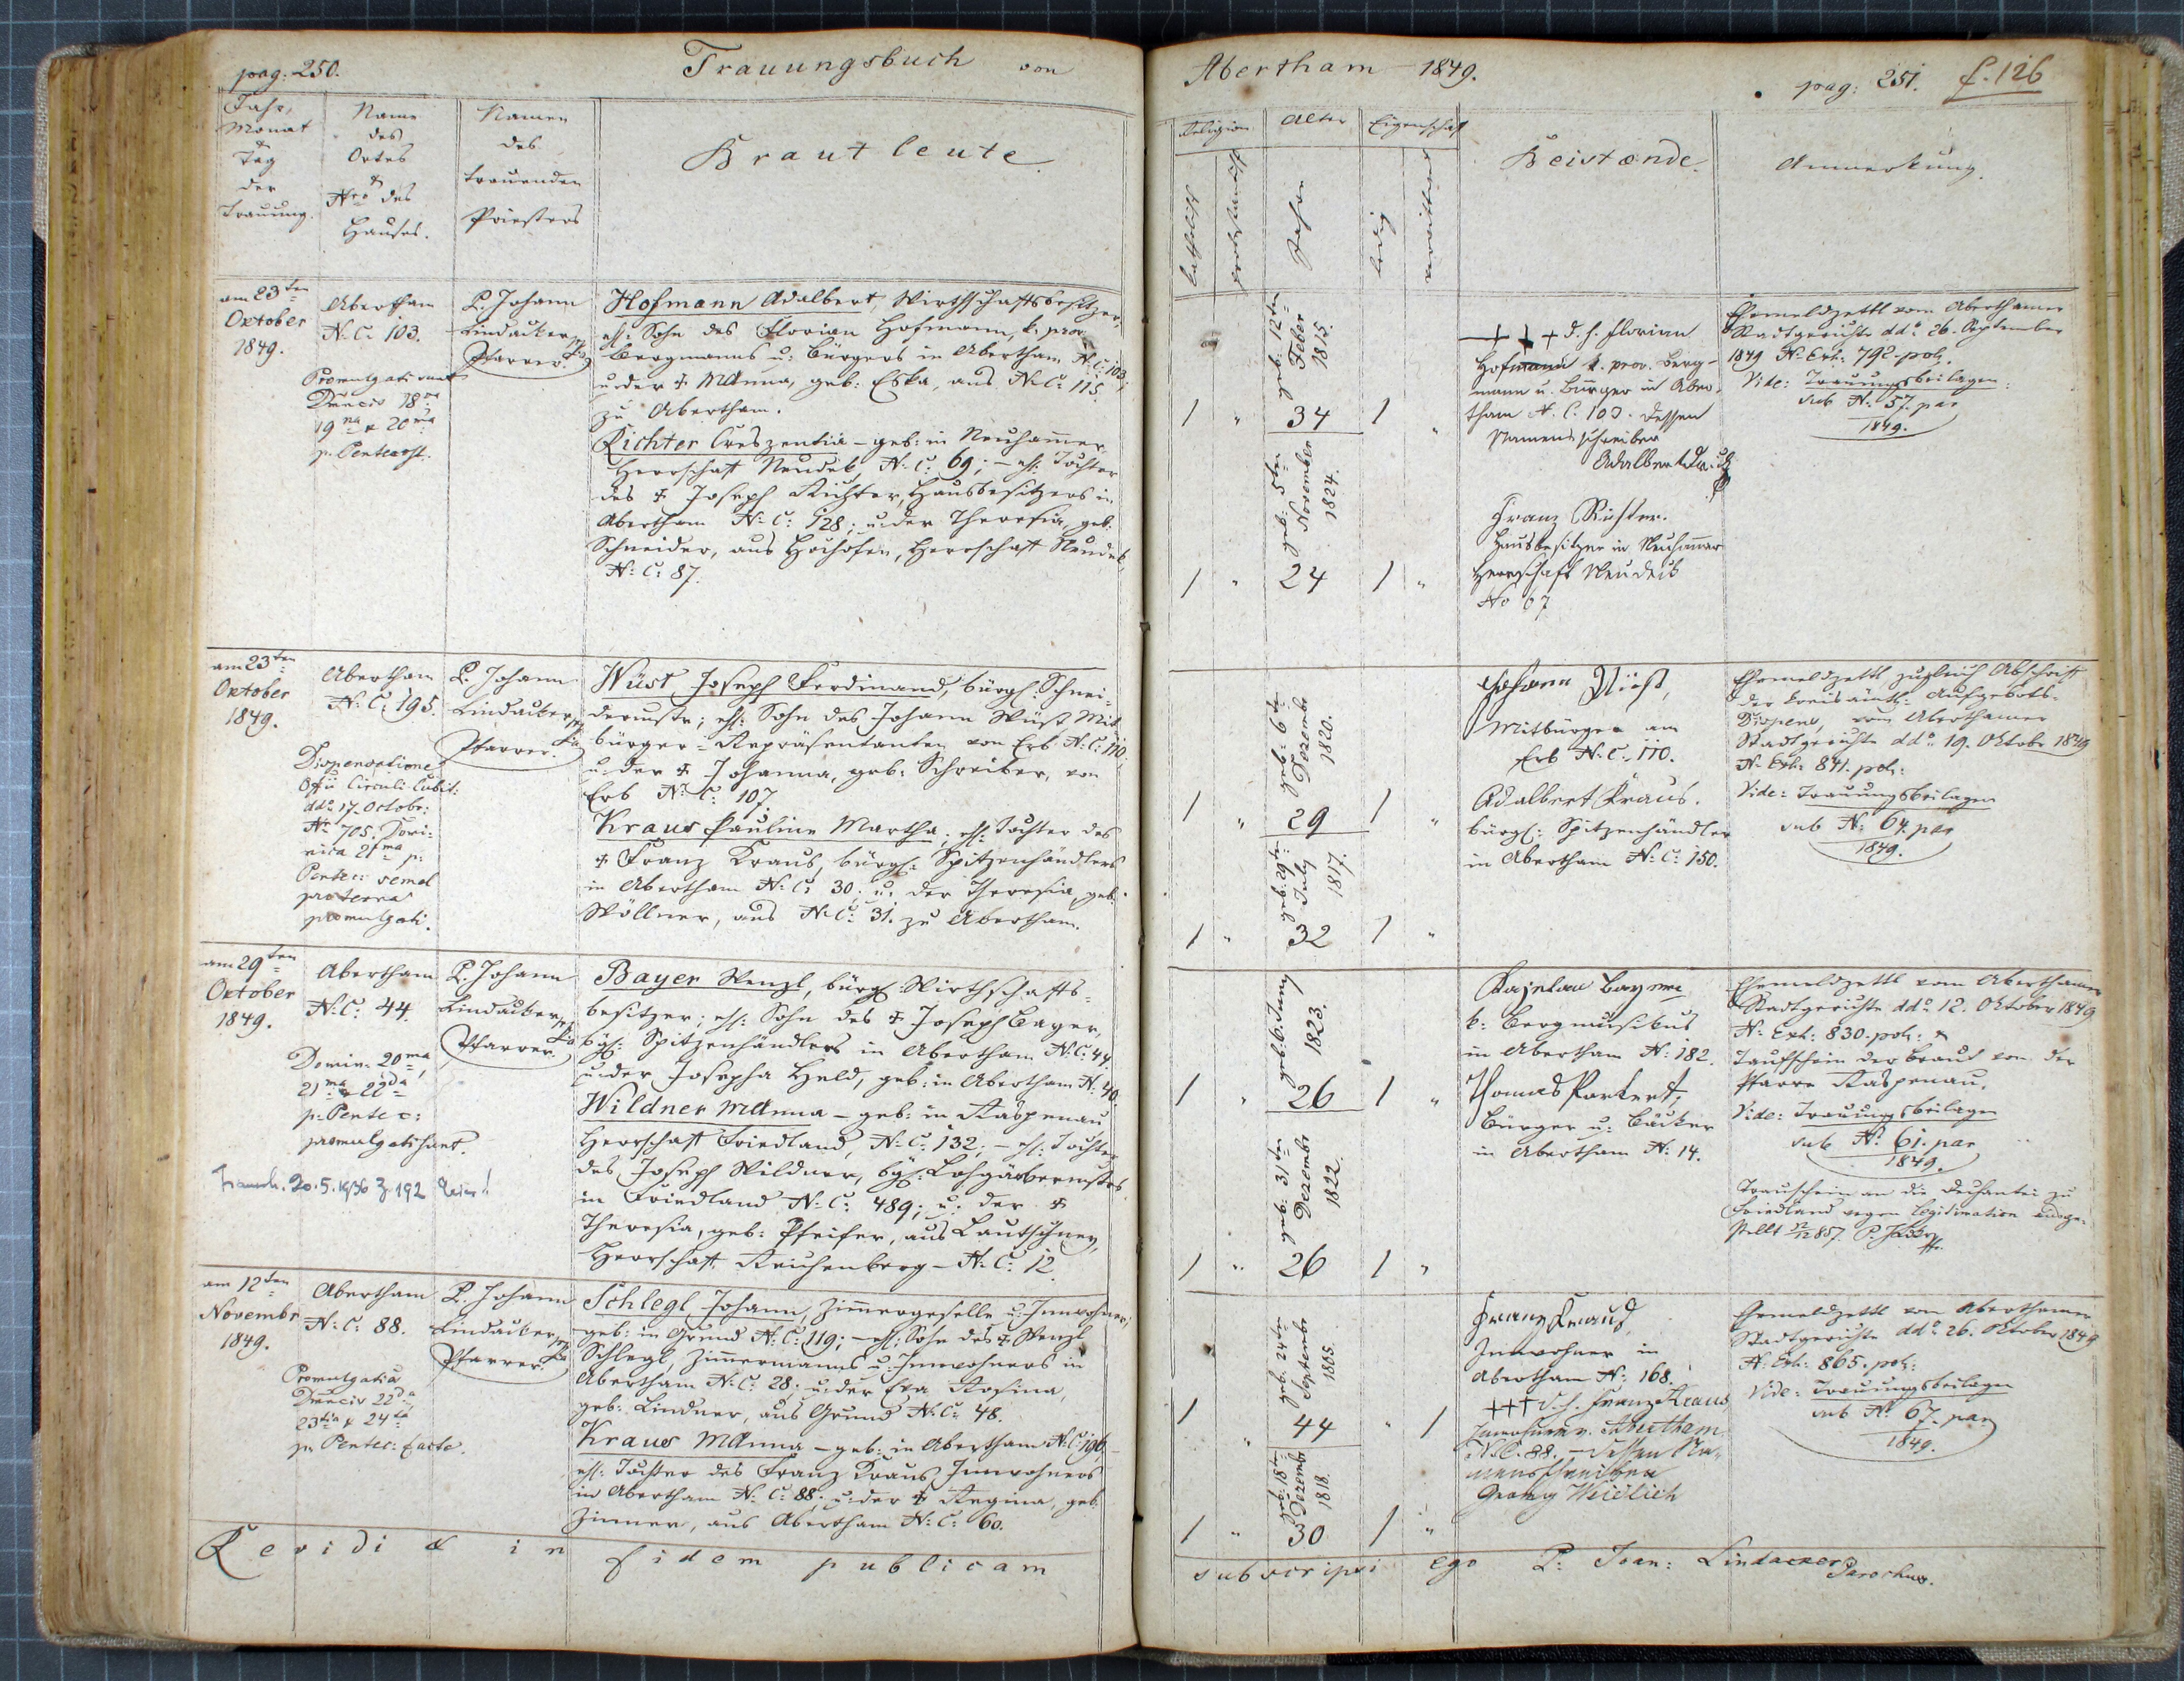 pag: 250.
Trauungsbuch von
Jahr,
Monat
&
Tag
der
Trauung.
Name
des
Ortes
&
Nro des
Hauses.
Namen
des
trauenden
Priesters
Brautleute.
am 23ten
October
1849.
Promulgati sunt
Dominicis 18va
19na & 20ma
p. Pentecost.
Abertham
N: C: 103.
P. Johann
Lindacker
Pfarrer.
Hofmann Adalbert, Wirthschaftsbesitzer,
ehl: Sohn des Florian Hofmann, k. prov:
Bergmanns u: Bürgers in Abertham N: C: 103;
u: der † MAnna, geb: Eska, aus N: C: 115.
zu Abertham.
Richter Creszentia – geb: in Neuhammer,
Herrschaft Neudek, N: C: 69; – ehl: Tochter
des † Joseph Richter, Hausbesitzers in
Abertham N: C: 128; u: der Theresia, geb:
Schneider, aus Hochofen, Herrschaft Neudek
N: C: 87.
am 23ten
October
1849.
Dispensatione
Offii Circuli Cubit:
ddo 17. Octobr:
Nr 705. Domi:
nica 21ma p:
Pentec: semel
pro terna
promulgati.
Abertham
N: C: 195.
P. Johann
Lindacker
Pfarrer.
Wüst Joseph Ferdinand, bürgl: Schnei-
dermstr; ehl: Sohn des Johann Wüst Mit-
bürger-Repräsentanten von Erb N: C: 110;
u: der † Johanna, geb: Schreiber, von
Erb N: C: 107.
Kraus Pauline Martha; ehl: Tochter des
† Franz Kraus, bürgl: Spitzenhändlers
in Abertham N: C: 30; u: der Theresia, geb:
Wöllner, aus N: C: 31. zu Abertham.
am 29ten
October
1849.
Domin: 20ma,
21ma & 22da
p: Pentec:
promulgati sunt.
20.5. Z 192
Abertham
N: C: 44.
P. Johann
Lindacker
Pfarrer.
Bayer Wenzl, bürgl: Wirthschafts-
besitzer; ehl: Sohn des † Joseph Bayer,
bgl: Spitzenhändlers in Abertham N: C: 44.
u: der Josepha Held, geb: in Abertham N: 40.
Wildner MAnna – geb: in Raspenau
Herrschaft Friedland, N: C: 132; – ehl: Tochter
des Joseph Wildner, bgl: Lohgärbermstrs
in Friedland N: C: 489; u: der †
Theresia, geb: Pfeifer, aus Lautschney,
Herrschaft Reichenberg – N: C: 12.
am 12ten
Novembr
1849.
Promulgatio
Domincis 22da,
23tia & 24ta
p: Pentec: facta.
Abertham
N: C: 88.
P. Johann
Lindacker
Pfarrer.
Schlegl Johann, Zimmergeselle u: Innwohner,
geb: in Grund N: C: 119; – ehl: Sohn des † Wenzl
Schlegl, Zimmermanns u: Innwohners in
Abertham N: C: 28; u: der Eva Rosina,
geb: Lindner, aus Grund N: C: 48.
Kraus MAnna – geb: in Abertham N: C: 196;
ehl: Tochter des Franz Kraus, Innwohners
in Abertham N: C: 88; u: der † Regina, geb:
Zinner, aus Abertham N: C: 60.
Revidi & in fidem publicam
Abertham 1849.
pag: 251.
f. 126
Religion
Alter
Eigenschaft
katholisch
protestantisch
Jahre
ledig
verwittwet
Beistænde.
Anmerkung.
geb: 12ten
Feber
1815.
1 " 34 1 "
geb: 5ten
November
1824.
1 " 24 1 "
+++ d. h. Florian
Hofmann k. prov. Berg-
mann u. Bürger in Aber-
tham N. C. 103. dessen
Namensschreiber
Franz Richter.
Hausbesitzer in Neuhammer
Herrschaft Neudeck
No 67
Ehemeldzettl vom Aberthamer
Stadtgerichte ddo: 26. September
1849 N: Exh: 792. pol:
Vide: Trauungsbeilagen
sub N: 57. par
1849.
geb: 6ten
Dezembr
1820.
1 " 29 1 "
geb: 29ten
July
1817.
1 " 32 1 "
Johann Wüst,
Mitbürger am
Erb N: C: 110.
Adalbert Kraus.
bürgl: Spitzenhändler
in Abertham N: C: 150.
Ehemeldzettl zugleich Abschrift
der kreisämtl: Aufgebots-
Dispens, vom Aberthamer
Stadtgerichte ddo: 19. Oktobr 1849
N: Exh: 841. pol:
Vide: Trauungsbeilagen
sub N: 64. par
1849.
geb: 6. Juny
1823.
1 " 26 1 "
geb: 31ten
Dezembr
1822.
1 " 26 1 "
k: Bergmusikus
in Abertham N: 182.
Thomas Parkert,
Bürger u: Bäcker
in Abertham N: 14.
Ehemeldzettl vom Aberthamer
Stadtgerichte ddo: 12. Oktober 1849
N: Exh: 830. pol: &
Taufschein der Braut von der
Pfarre Raspenau.
Vide: Trauungsbeilagen
sub N: 61. par
1849.
Trauschein an die Dechantei zu
Friedland wegen Legitimation ausge-
stellt
geb: 24ten
Septembr
1805.
1 " 44 " 1
geb: 18ten
Dezembr
1818.
1 " 30 1 "
Franz Kraus,
Innwohner in
Abertham N: 168.
+++ d. h. Franz Kraus,
Innwohner v. Abertham
N. C. 88. – dessen Na-
mensschreiber
Georg Weidlich
Ehemeldzettl von Aberthamer
Stadtgerichte ddo: 26. Oktober 1849
N: Exh: 865. pol:
Vide: Trauungsbeilagen
sub N: 67. par
1849.
subscripsi ego P: Joan: Lindacker
Parochus.